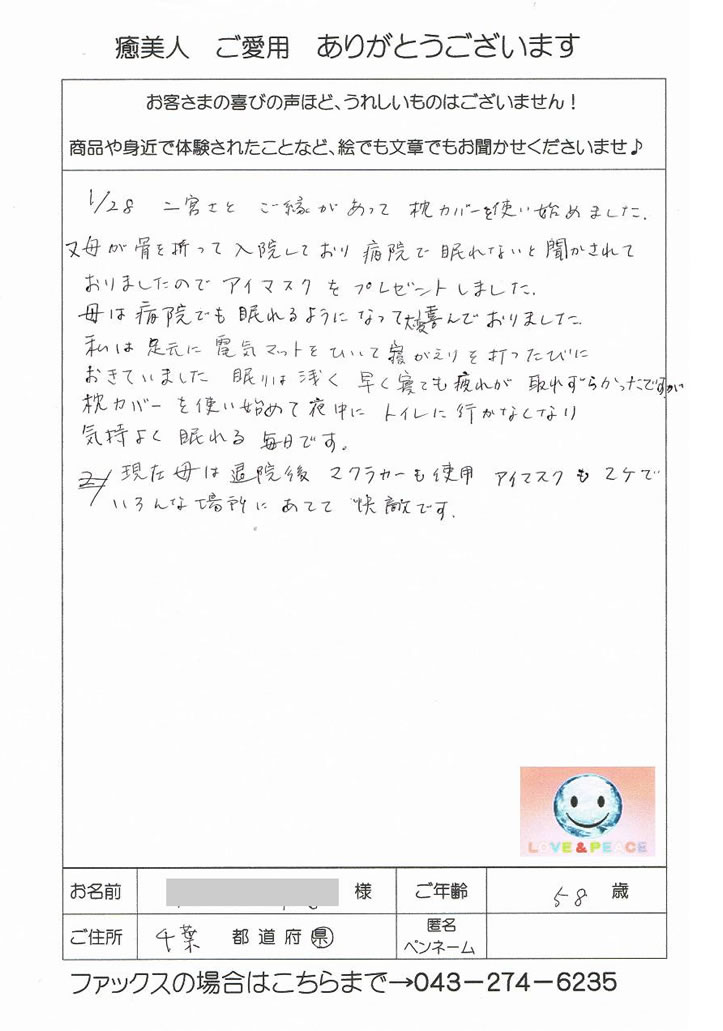 癒美人　ご愛用　ありがとうございます
お客さまの喜びの声ほど、うれしいものはございません！
商品や身近で体験されたことなど、絵でも文章でもお聞かせくださいませ♪
1/28 二宮さと ご縁があって 枕カバーを使い始めました.
又母が骨を折って入院しており 病院で眠れないと聞かされて
おりましたので アイマスクを プレゼントしました.
母は病院でも眠れるようになって大変喜んでおりました.
私は足元に電気マットをひいて寝がえりを打つたびに
おきていました 眠りは浅く 早く寝ても疲れが 取れずらかったですが
枕カバーを使い始めて夜中に トイレに行かなくなり
気持よく眠れる 毎日です。
現在母は退院後 マクラカバーも使用 アイマスクも 2ケで
いろんな場所にあてて 快敵です.
LOVE&PEACE
お名前 様 ご年齢 58 歳
ご住所 千葉 都 道 府 県 匿名 ペンネーム
ファックスの場合はこちらまで→043－274－6235